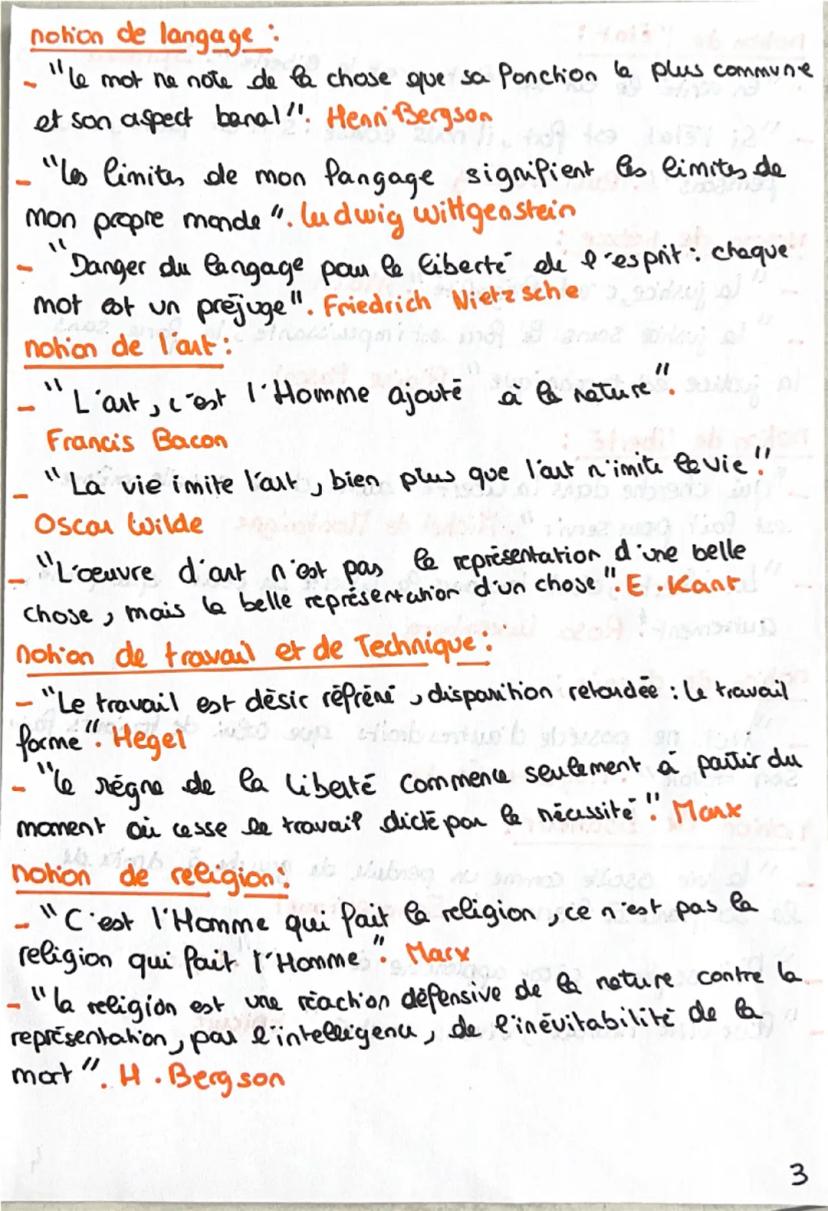 notion de langage :
- "le mot ne note de la chose que sa fonction la plus commune
et son aspect banal". Henri Bergson
- "les limites de mon langage signifient les limites de
mon propre monde". Ludwig Wittgenstein
- "Danger du langage pour la liberté de l'esprit : chaque
mot est un préjugé". Friedrich Nietzsche
notion de l'art :
- "L'art, c'est l'Homme ajouté à la nature".
Francis Bacon
- "La vie imite l'art, bien plus que l'art n'imite la vie".
Oscar Wilde
- "L'œuvre d'art n'est pas la représentation d'une belle
chose, mais la belle représentation d'un chose". E. Kant
notion de travail et de Technique :
- "Le travail est désir réfréné, disparition retardée : le travail
forme". Hegel
- "le règne de la liberté commence seulement à partir du
moment où cesse le travail dicté par la nécessité". Marx
notion de religion :
- "C'est l'Homme qui fait la religion, ce n'est pas la
religion qui fait l'Homme". Marx
- "la religion est une réaction défensive de la nature contre la
représentation, par l'intelligence, de l'inévitabilité de la
mort". H. Bergson
3